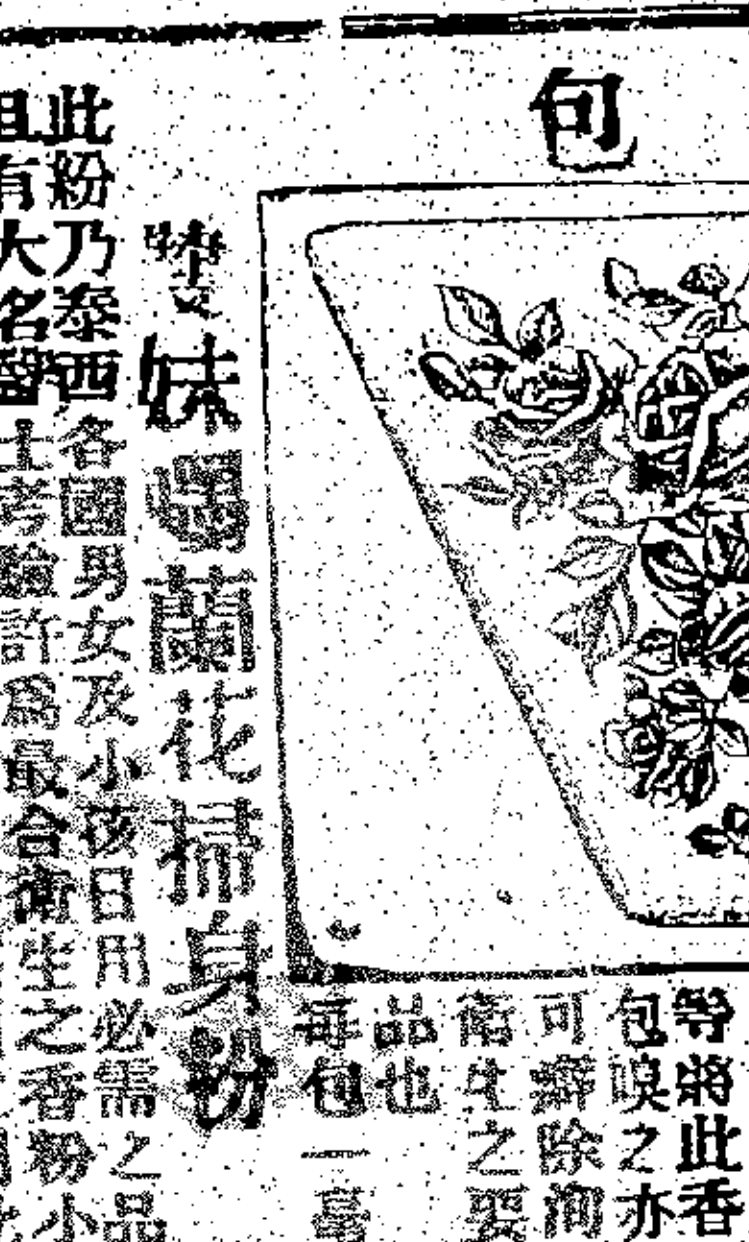 包
等將此香
包嗅之亦
可辟除洵
衛生之要
品也
每包一毫
雙妹嘜蘭花掃身粉
此粉乃泰西各國男女及小孩日用必需之品
且有大名醫士考驗許為最合衛生之香粉小